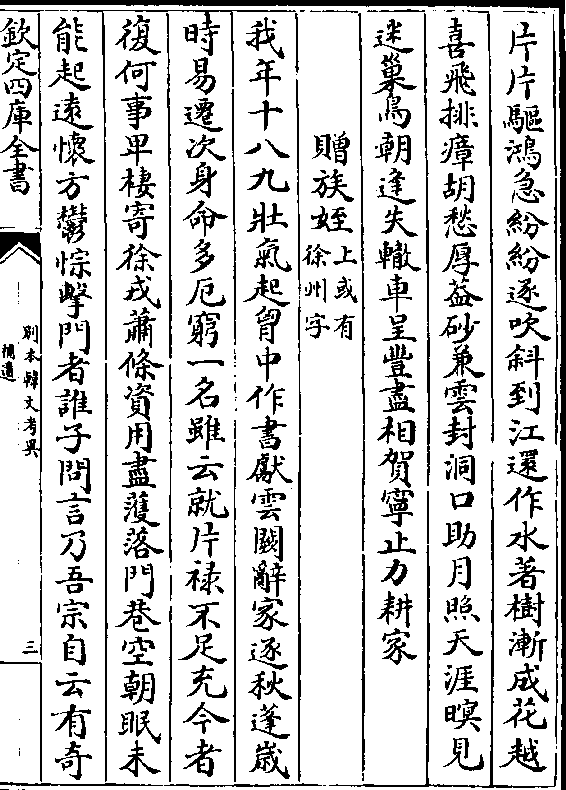 片片驅鴻急紛紛逐吹斜到江還作水著樹漸成花越
喜飛排瘴胡愁厚益砂兼雲封洞口助月照天涯暝見
迷巢鳥朝逢失轍車呈豐盡相賀寧止力耕家
贈族姪上或有徐州字
我年十八九壯氣起胷中作書獻雲闕辭家逐秋蓬歳
時易遷次身命多厄窮一名雖云就片禄不足充今者
復何事卑棲寄徐戎蕭條資用盡蒦落門巷空朝眠未
能起逺懷方鬱悰擊門者誰子問言乃吾宗自云有奇
欽定四庫全書
別本韓文考異
補遺
三